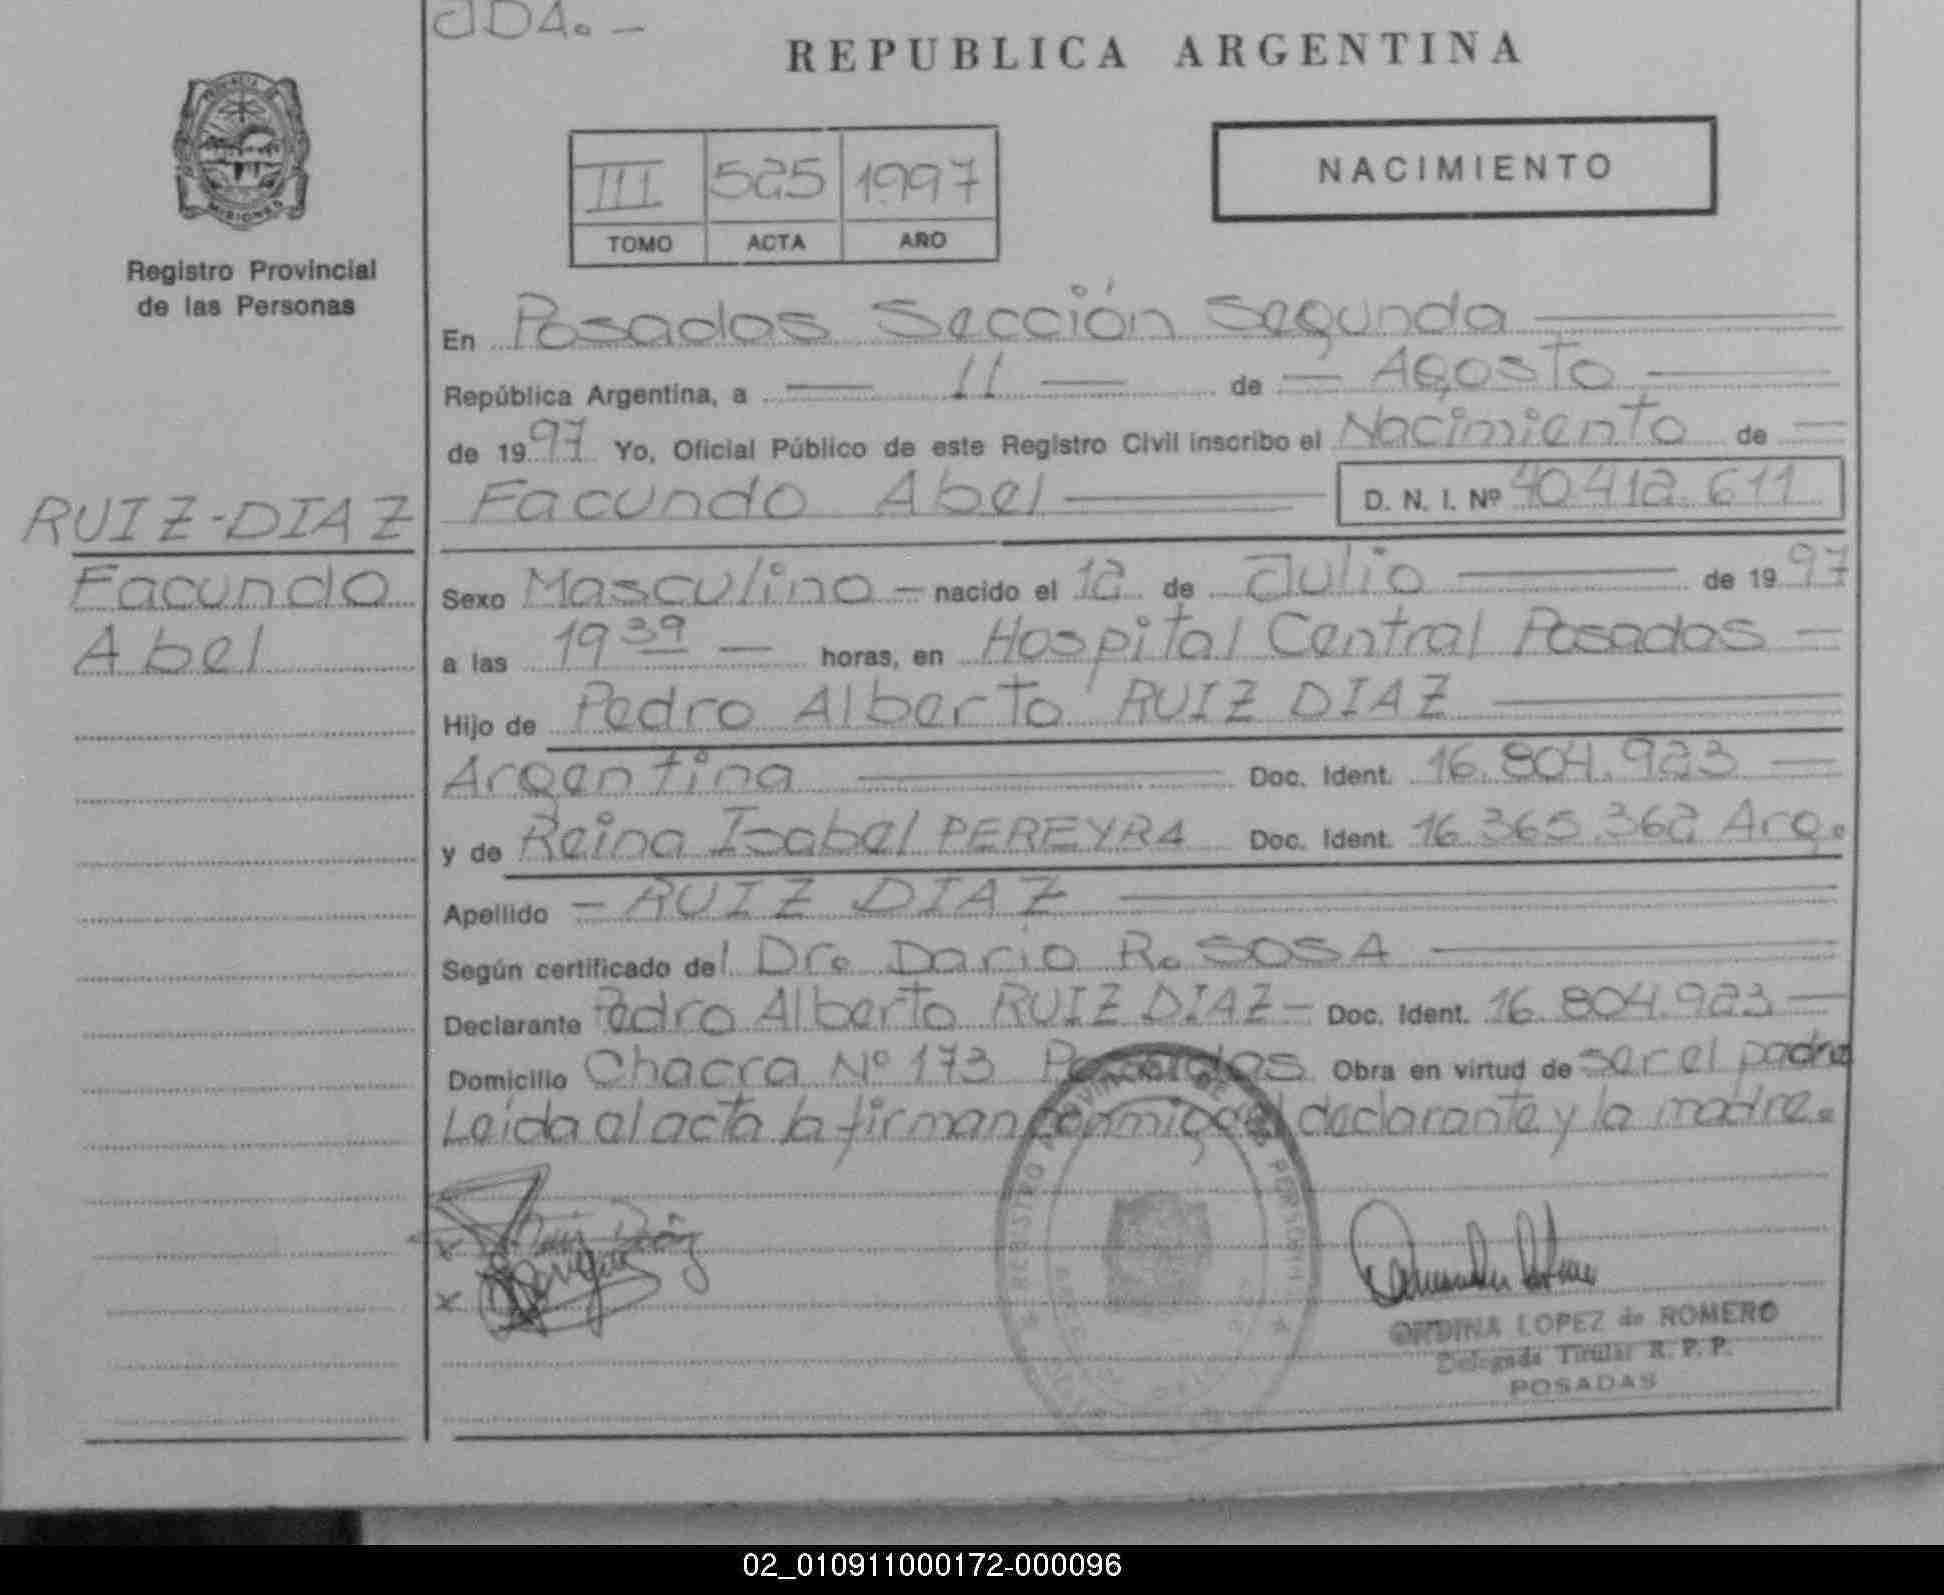 JDA. —
REPUBLICA ARGENTINA
MISIONES
Registro Provincial
de las Personas
III 525 1997
TOMO ACTA AÑO
NACIMIENTO
En Posadas Sección Segunda
República Argentina, a — 11 — de — Agosto —
de 1997 Yo, Oficial Público de este Registro Civil inscribo el Nacimiento de —
RUIZ-DIAZ
Facundo
Abel
Facundo Abel — D. N. I. Nº 40.412.611
Sexo Masculino — nacido el 12 de Julio — de 1997
a las 19 39 — horas, en Hospital Central Posadas —
Hijo de Pedro Alberto RUIZ DIAZ
Argentina — Doc. Ident. 16.804.923 —
y de Reina Isabel PEREYRA Doc. Ident. 16.365.362 Arg.
Apellido — RUIZ DIAZ
Según certificado del Dr. Dario R. SOSA
Declarante Pedro Alberto RUIZ DIAZ — Doc. Ident. 16.804.923 —
Domicilio Chacra Nº 173 Posadas Obra en virtud de ser el padre
Leida el acta la firman conmigo el declarante y la madre.
x Ruiz Díaz
x
REGISTRO PROVINCIAL DE LAS PERSONAS
LOPEZ de ROMERO
Delegada Titular R. P. P.
POSADAS
02_010911000172-000096